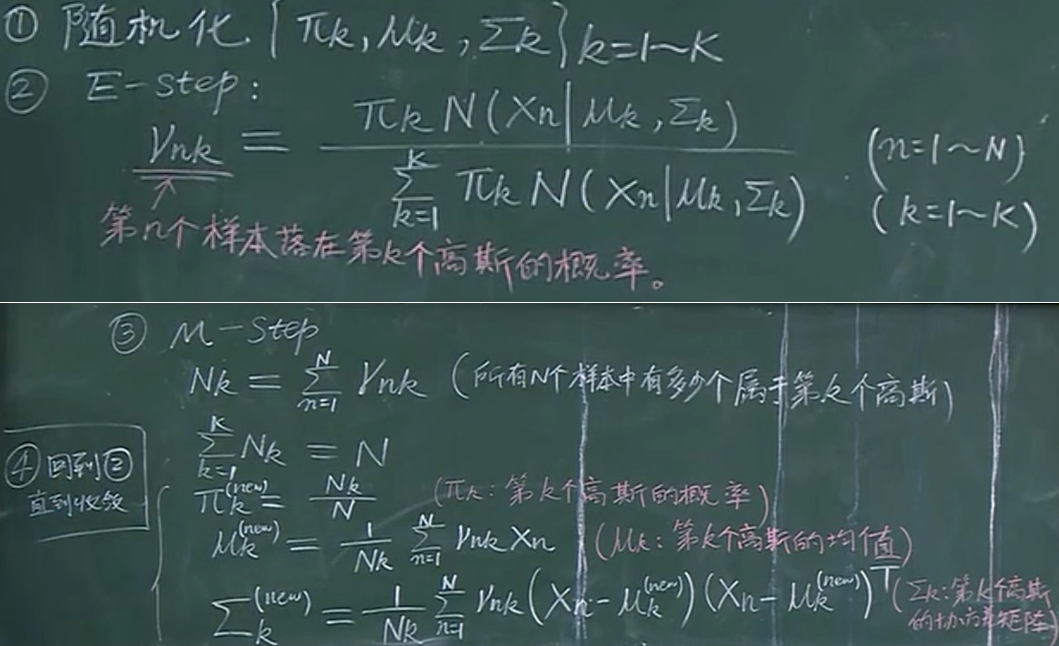 ① 随机化 {πk, μk, Σk} k=1~K
② E-Step:
γnk = πk N(Xn|μk, Σk) / Σ_{k=1}^{K} πk N(Xn|μk, Σk) (n=1~N)
(k=1~K)
第n个样本落在第k个高斯的概率。
③ M-Step
Nk = Σ_{n=1}^{N} γnk (所有N个样本中有多少个属于第k个高斯)
Σ_{k=1}^{K} Nk = N
πk^(new) = Nk / N (πk: 第k个高斯的概率)
μk^(new) = 1/Nk Σ_{n=1}^{N} γnk Xn (μk: 第k个高斯的均值)
Σk^(new) = 1/Nk Σ_{n=1}^{N} γnk (Xn - μk^(new)) (Xn - μk^(new))^T (Σk: 第k个高斯
的协方差矩阵)
④ 回到②
直到收敛